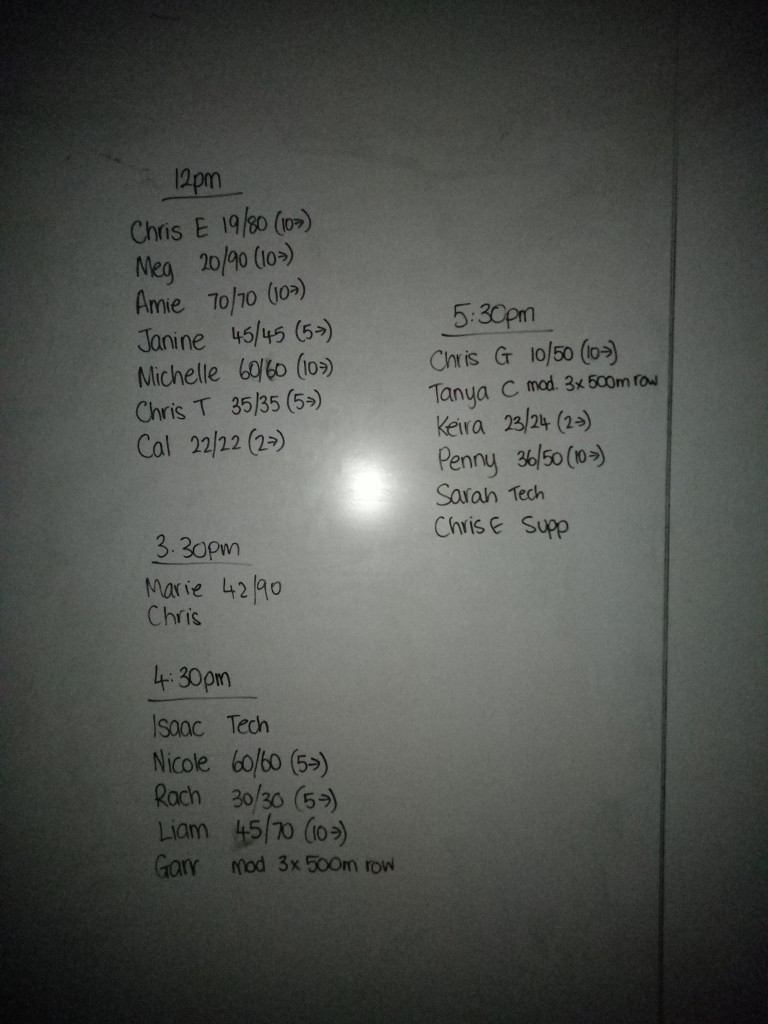 12pm
Chris E 19/80 (10→)
Meg 20/90 (10→)
Amie 70/70 (10→)
Janine 45/45 (5→)
Michelle 60/60 (10→)
Chris T 35/35 (5→)
Cal 22/22 (2→)
3.30pm
Marie 42/90
Chris
4:30pm
Isaac Tech
Nicole 60/60 (5→)
Rach 30/30 (5→)
Liam 45/70 (10→)
Garr mod 3x500m row
5:30pm
Chris G 10/50 (10→)
Tanya C mod. 3x500m row
Keira 23/24 (2→)
Penny 36/50 (10→)
Sarah Tech
Chris E Supp